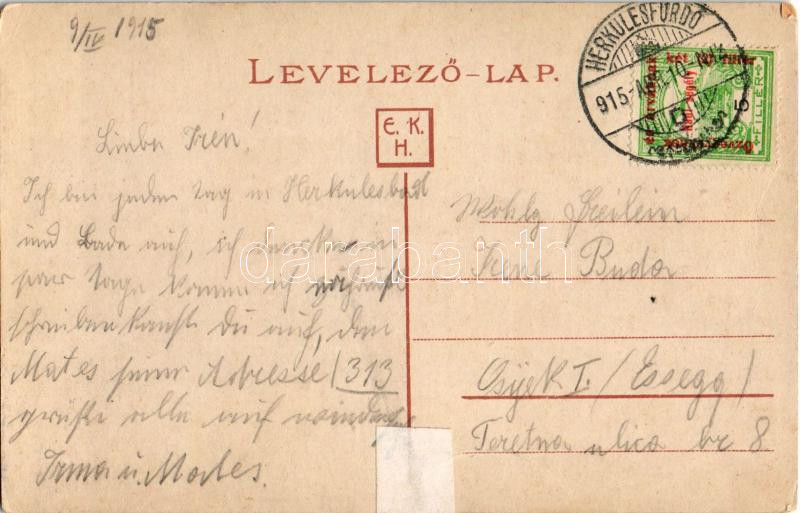 9/IV 1915
LEVELEZŐ-LAP.
E. K.
H.
HERKULESFÜRDŐ
915
5
FILLÉR
Liebe Irén!
Ich bin jeden Tag in Herkulesbad
und Bade auch, ich
paar Tage komme ich
schreiben kanst Du auch, den
Mates seine Adresse (313
grüßt alle auf
Irma u. Mates.
Wohlg Freilein
Irene Budor
Osijek I. / Essegg /
Teretna ulica br 8
darabanth